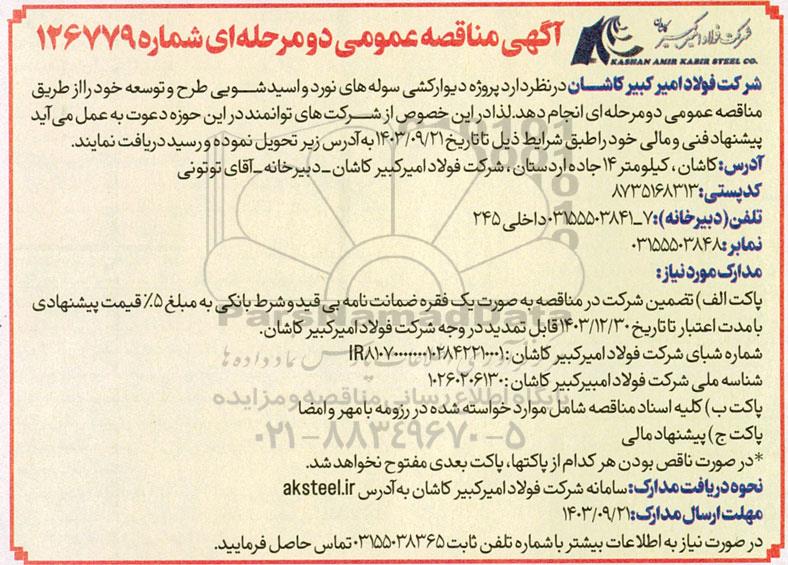 شرکت فولاد امیرکبیر کاشان
KASHAN AMIR KABIR STEEL CO.
آگهی مناقصه عمومی دو مرحله‌ای شماره ۱۲۶۷۷۹
شرکت فولاد امیرکبیر کاشان در نظر دارد پروژه دیوارکشی سوله های نورد و اسیدشویی طرح و توسعه خود را از طریق
مناقصه عمومی دو مرحله ای انجام دهد. لذا در این خصوص از شرکت های توانمند در این حوزه دعوت به عمل می آید
پیشنهاد فنی و مالی خود را طبق شرایط ذیل تا تاریخ ۱۴۰۳/۰۹/۲۱ به آدرس زیر تحویل نموده و رسید دریافت نمایند.
آدرس: کاشان، کیلومتر ۱۴ جاده اردستان، شرکت فولاد امیرکبیر کاشان ـ دبیرخانه ـ آقای توتونی
کدپستی: ۸۷۳۵۱۶۸۳۱۳
تلفن (دبیرخانه): ۷ـ۰۳۱۵۵۵۰۳۸۴۱ داخلی ۲۴۵
نمابر: ۰۳۱۵۵۵۰۳۸۴۸
مدارک مورد نیاز:
پاکت الف) تضمین شرکت در مناقصه به صورت یک فقره ضمانت نامه بی قید و شرط بانکی به مبلغ ۵٪ قیمت پیشنهادی
با مدت اعتبار تا تاریخ ۱۴۰۳/۱۲/۳۰ قابل تمدید در وجه شرکت فولاد امیرکبیر کاشان.
شماره شبای شرکت فولاد امیرکبیر کاشان:
شناسه ملی شرکت فولاد امبیرکبیر کاشان: ۱۰۲۶۰۲۰۶۱۳۰
پاکت ب) کلیه اسناد مناقصه شامل موارد خواسته شده در رزومه با مهر و امضا
پاکت ج) پیشنهاد مالی
*در صورت ناقص بودن هر کدام از پاکتها، پاکت بعدی مفتوح نخواهد شد.
نحوه دریافت مدارک: سامانه شرکت فولاد امیرکبیر کاشان به آدرس aksteel.ir
مهلت ارسال مدارک: ۱۴۰۳/۰۹/۲۱
در صورت نیاز به اطلاعات بیشتر با شماره تلفن ثابت ۰۳۱۵۵۰۳۸۳۶۵ تماس حاصل فرمایید.
ParsNamadData
پایگاه اطلاع رسانی مناقصه و مزایده
۰۲۱-۸۸۳۴۹۶۷۰-۵